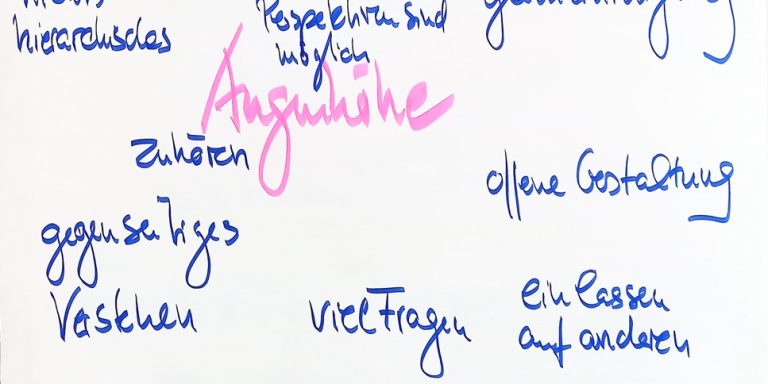 hierarchisches
Perspektiven sind
möglich
Augenhöhe
zuhören
offene Gestaltung
gegenseitiges
Verstehen
viel Fragen
einlassen
auf anderen